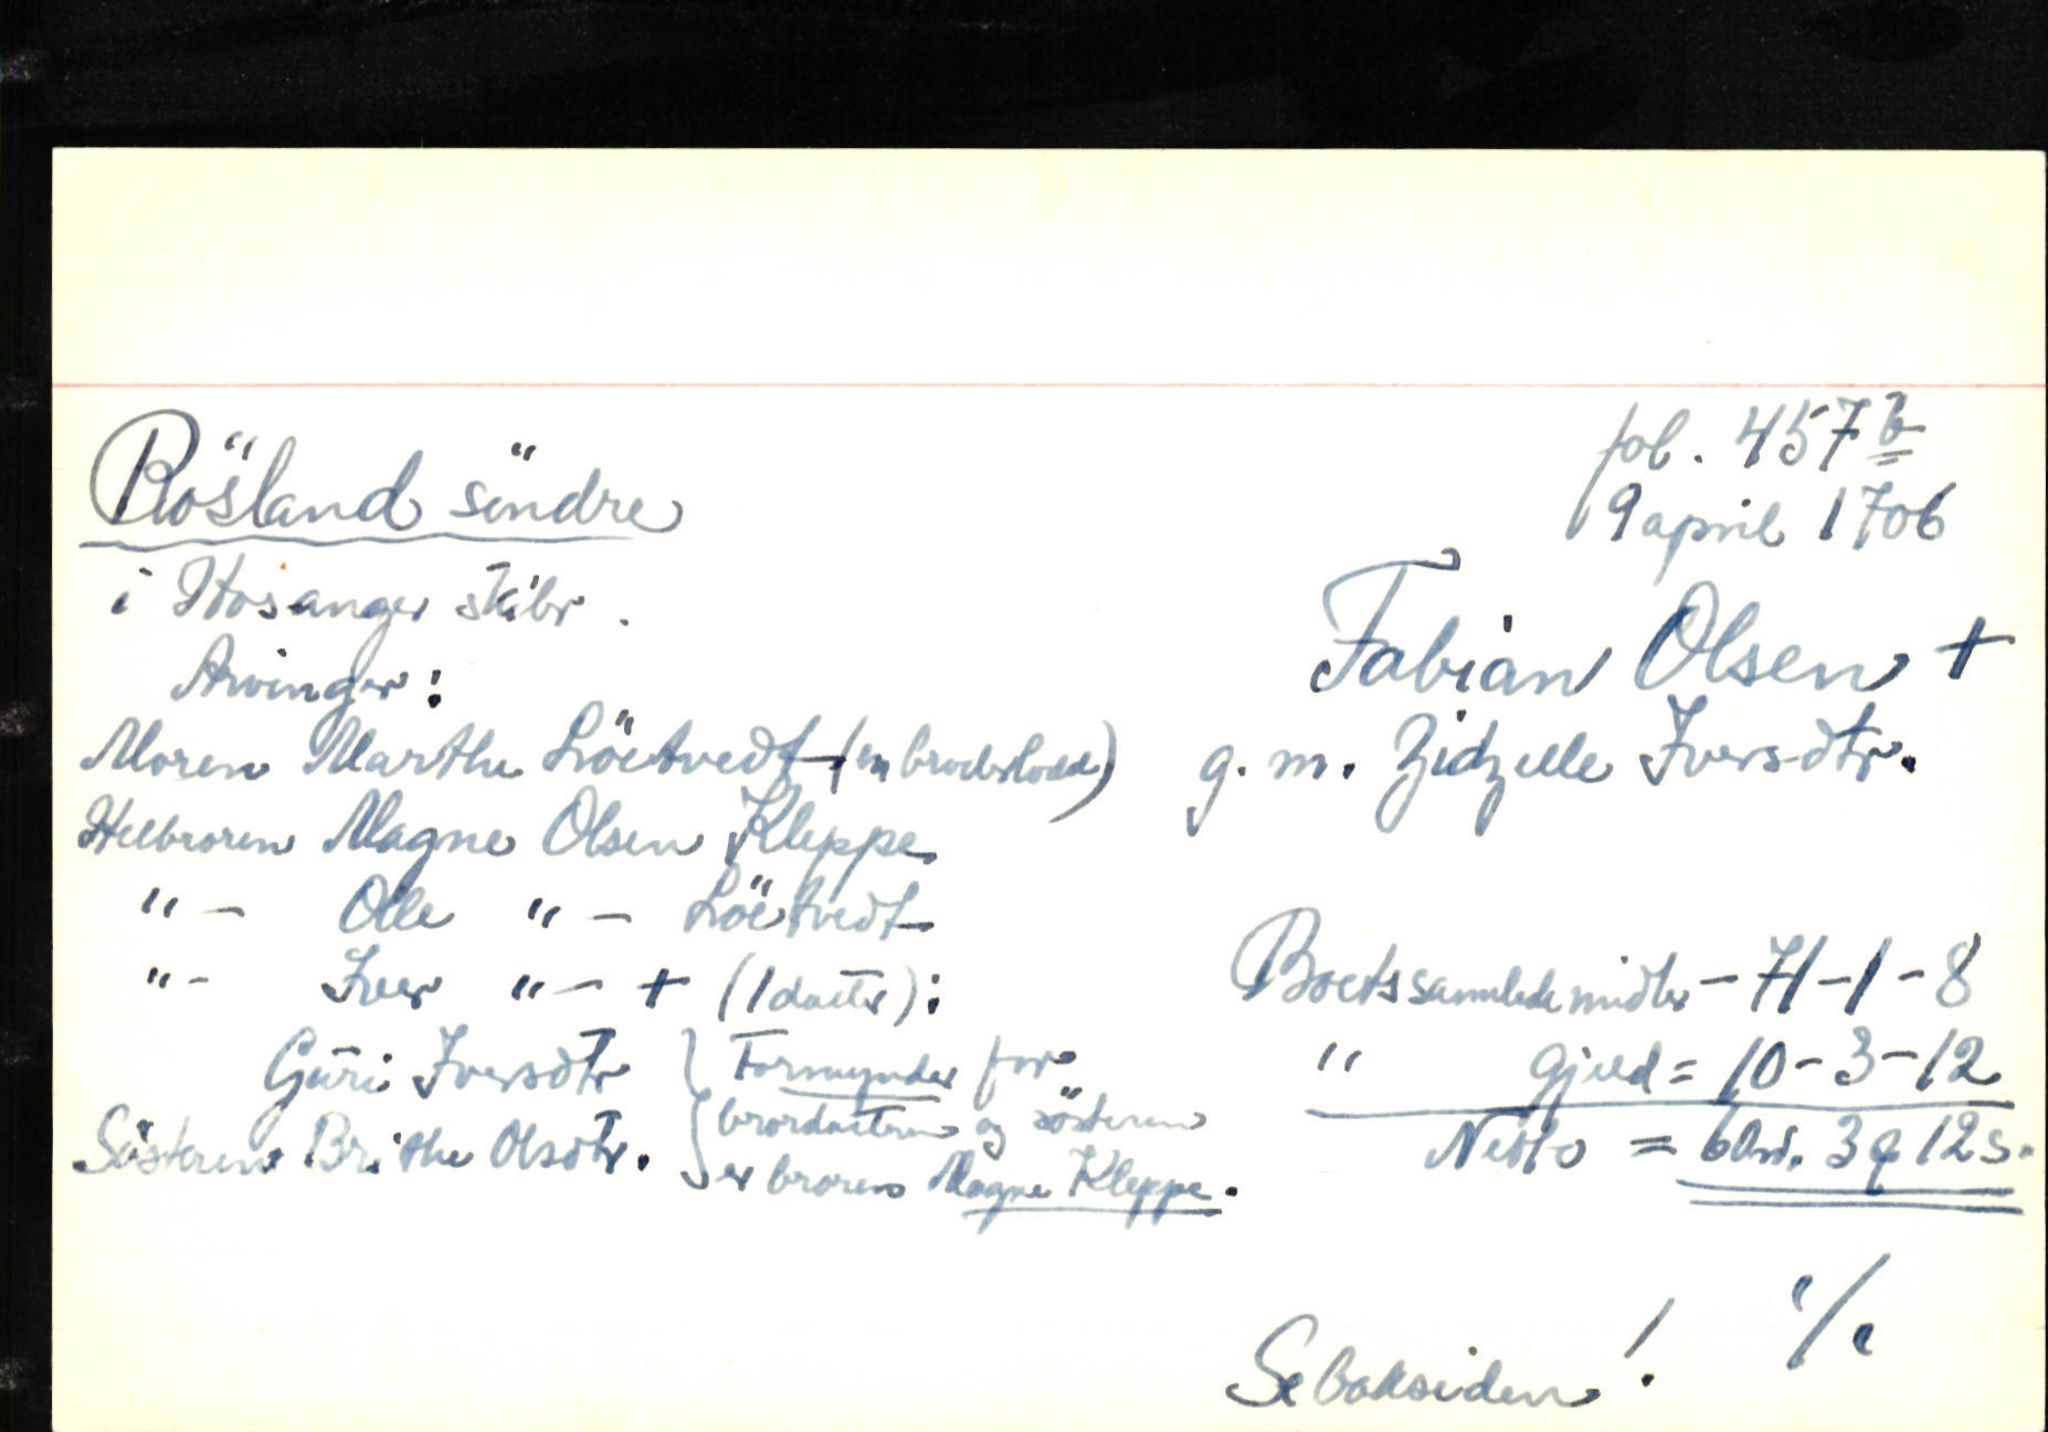 Rösland söndre
i Hosanger skibr.
Arvinger:
Moren Marthe Löetvedt (en broderlodd)
Helbroren Magne Olsen Kleppe
"- Olle "- Löetvedt
"- Iver "- + (1 datter):
Guri Iversdtr
Søsteren Brithe Olsdtr.
Formynder for
brordatteren og sösteren
er broren Magne Kleppe.
fol. 457b
19 april 1706
Fabian Olsen +
g. m. Zidzelle Iversdtr.
Boets samlede midler - 71-1-8
" Gjeld = 10-3-12
Netto = 60rd. 3q 12s.
Se baksiden! ·/·